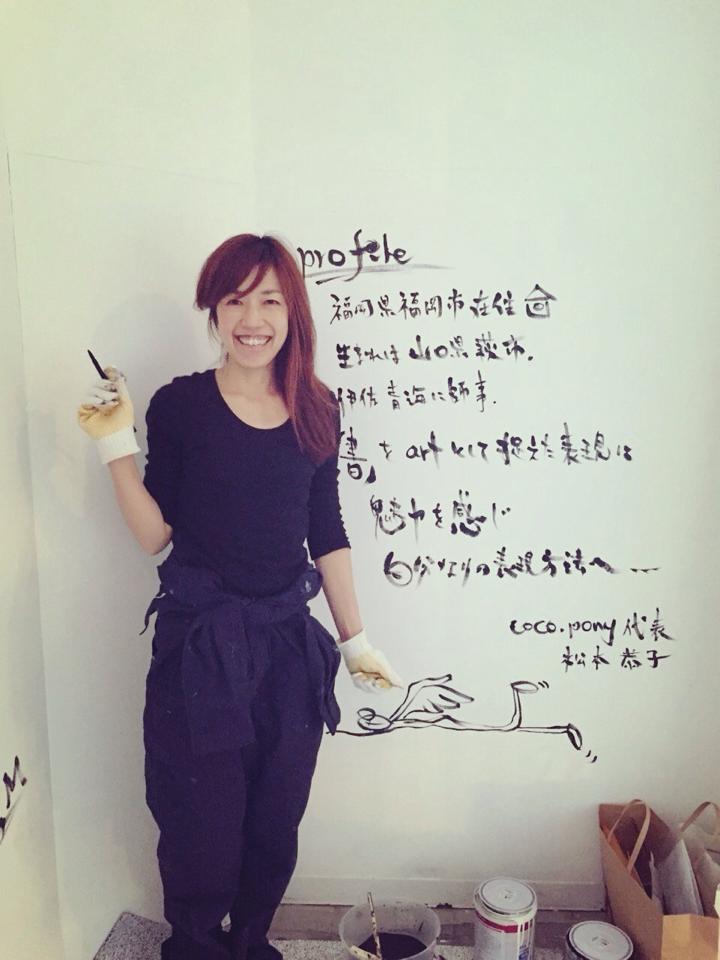 profile
福岡県福岡市在住
生まれは山口県萩市.
伊佐青海に師事.
「書」を artとして捉えた表現に
魅力を感じ
自分なりの表現方法へ...
coco.pony 代表
松本 恭子